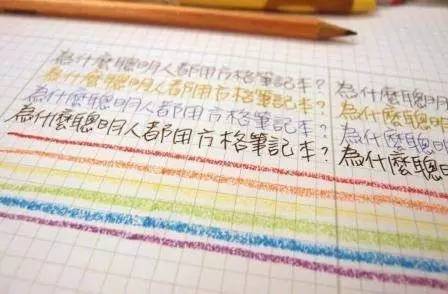 為什麼聰明人都用方格筆記本? 為什麼聰明
為什麼聰明人都用方格筆記本? 為什麼聰明
為什麼聰明人都用方格筆記本? 為什麼聰明
為什麼聰明人都用方格筆記本? 為什麼聰